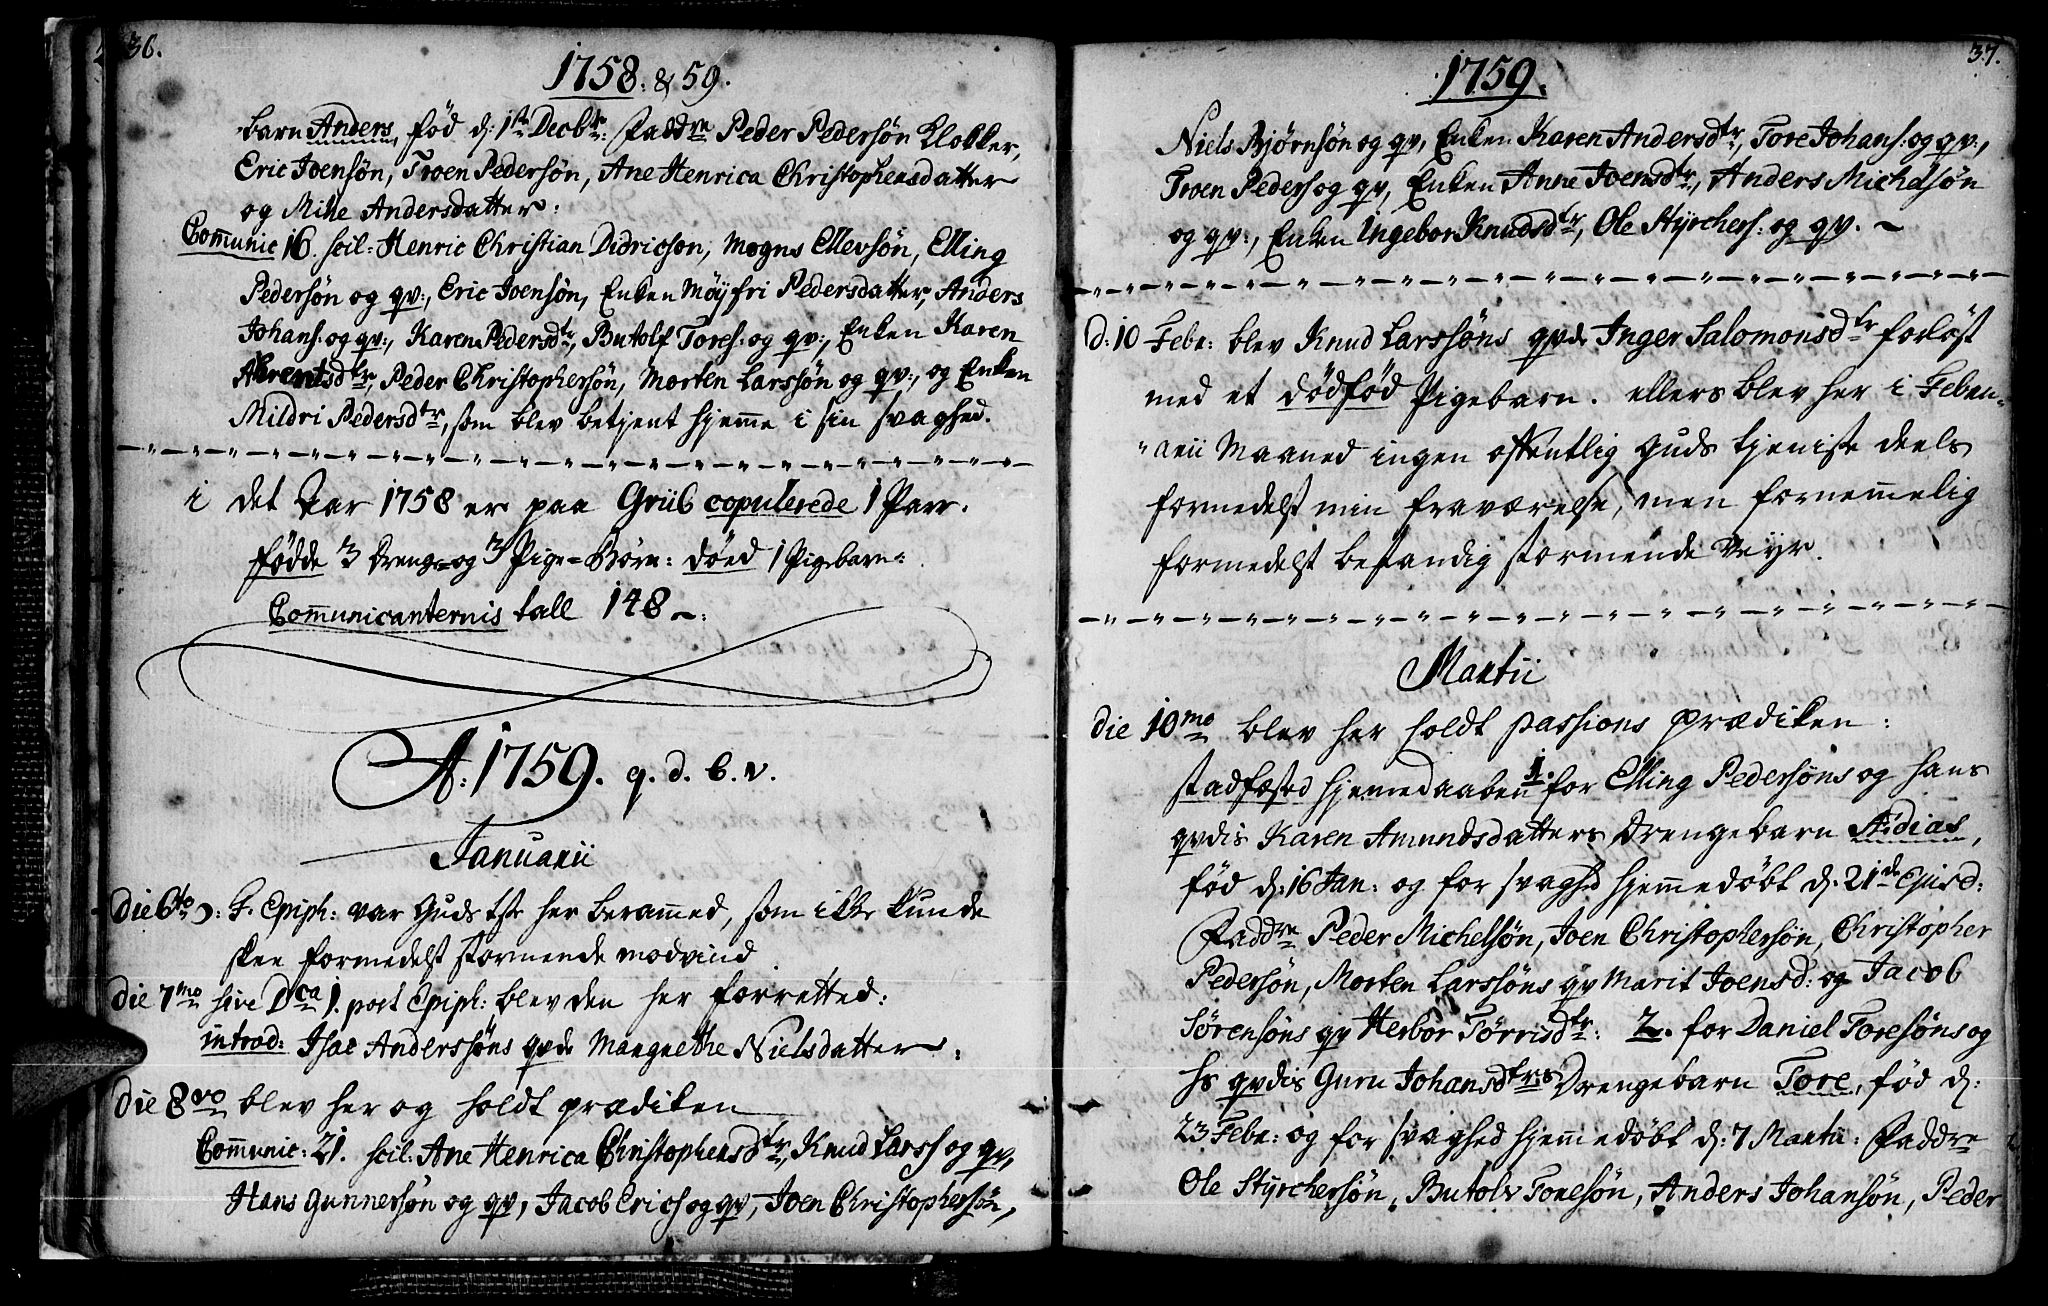 36.
1758. & 59.
barn Anders, fød d: 1ste Decbr: Faddre Peder Pedersøn Klokker,
Eric Joensøn, Troen Pedersøn, Ane Henrica Christophersdatter
og Mihe Andersdatter:
Com̅unic 16. scil: Henric Christian Didricson, Mogns Ellevsøn, Elling
Pedersøn og qv:, Eric Joensøn, Enken Møyfri Pedersdatter, Anders
Johans: og qv:, Karen Pedersdtr, Butolf Tores: og qv:, Enken Karen
Arentsdtr, Peder Christophersøn, Morten Larssøn og qv:, og Enken
Mildri Pedersdtr, som blev betjent hjem̅e i sin svaghed.
i det Aar 1758 er paa Griib copulerede 1 Parr.
fødde 3 Drenge- og 3 Pige-Børn: døed 1 Pigebarn:
Com̅unicanternis tall 148 ~:
A: 1759. q. d. b. v.
Januarii
die 6to ɔ: F. Epiph: var Guds tste her beram̅ed, som ikke kunde
skee formedelst stormende modvind
die 7mo sive Dca 1. post Epiph: blev den her forretted:
introd: Isac Anderssøns qvde Margrethe Nielsdatter:
die 8vo blev her og holdt prædiken
Com̅unic: 21. scil: Ane Henrica Christophersdtr, Knud Larss og qv,
Hans Gunnersøn og qv, Jacob Erics og qv, Joen Christophersøn,
37.
1759.
Niels Bjørnsøn og qv, Enken Karen Andersdtr, Tore Johans: og qv:,
Troen Peders og qv, Enken Anne Joensdtr, Anders Michelsøn
og qv:, Enken Ingebor Knudsdtr, Ole Styrchers: og qv. ~
d: 10 Febr: blev Knud Larssøns qvde Inger Salomonsdtr forløst
med et dødfød Pigebarn. ellers blev her i Febru-
"arii Maaned ingen offentlig Guds tjeniste deels
formedelst min fraværelse, men fornem̅elig
formedelst bestandig stormende Veyr.
Martii
die 10mo blev her holdt passions prædiken:
stadfæsted hjem̅edaaben 1. for Elling Pedersøns og hans
qvdis Karen Amundsdatters Drengebarn Ædias,
fød d: 16 Jan: og for svaghed hjem̅edøbt d: 21de Ejusd:
Faddre Peder Michelsøn, Joen Christophersøn, Christopher
Pedersøn, Morten Larssøns qv Marit Joensd: og Jacob
Sørensøns qv Herbor Tørrisdtr: 2. for Daniel Toresøns og
hs qvdis Guru Johansdtrs Drengebarn Tore, fød d:
23 Febr: og for svaghed hjem̅edøbt d: 7 Martii: Faddre
Ole Styrchersøn, Butolv Toresøn, Anders Johansøn, Peder